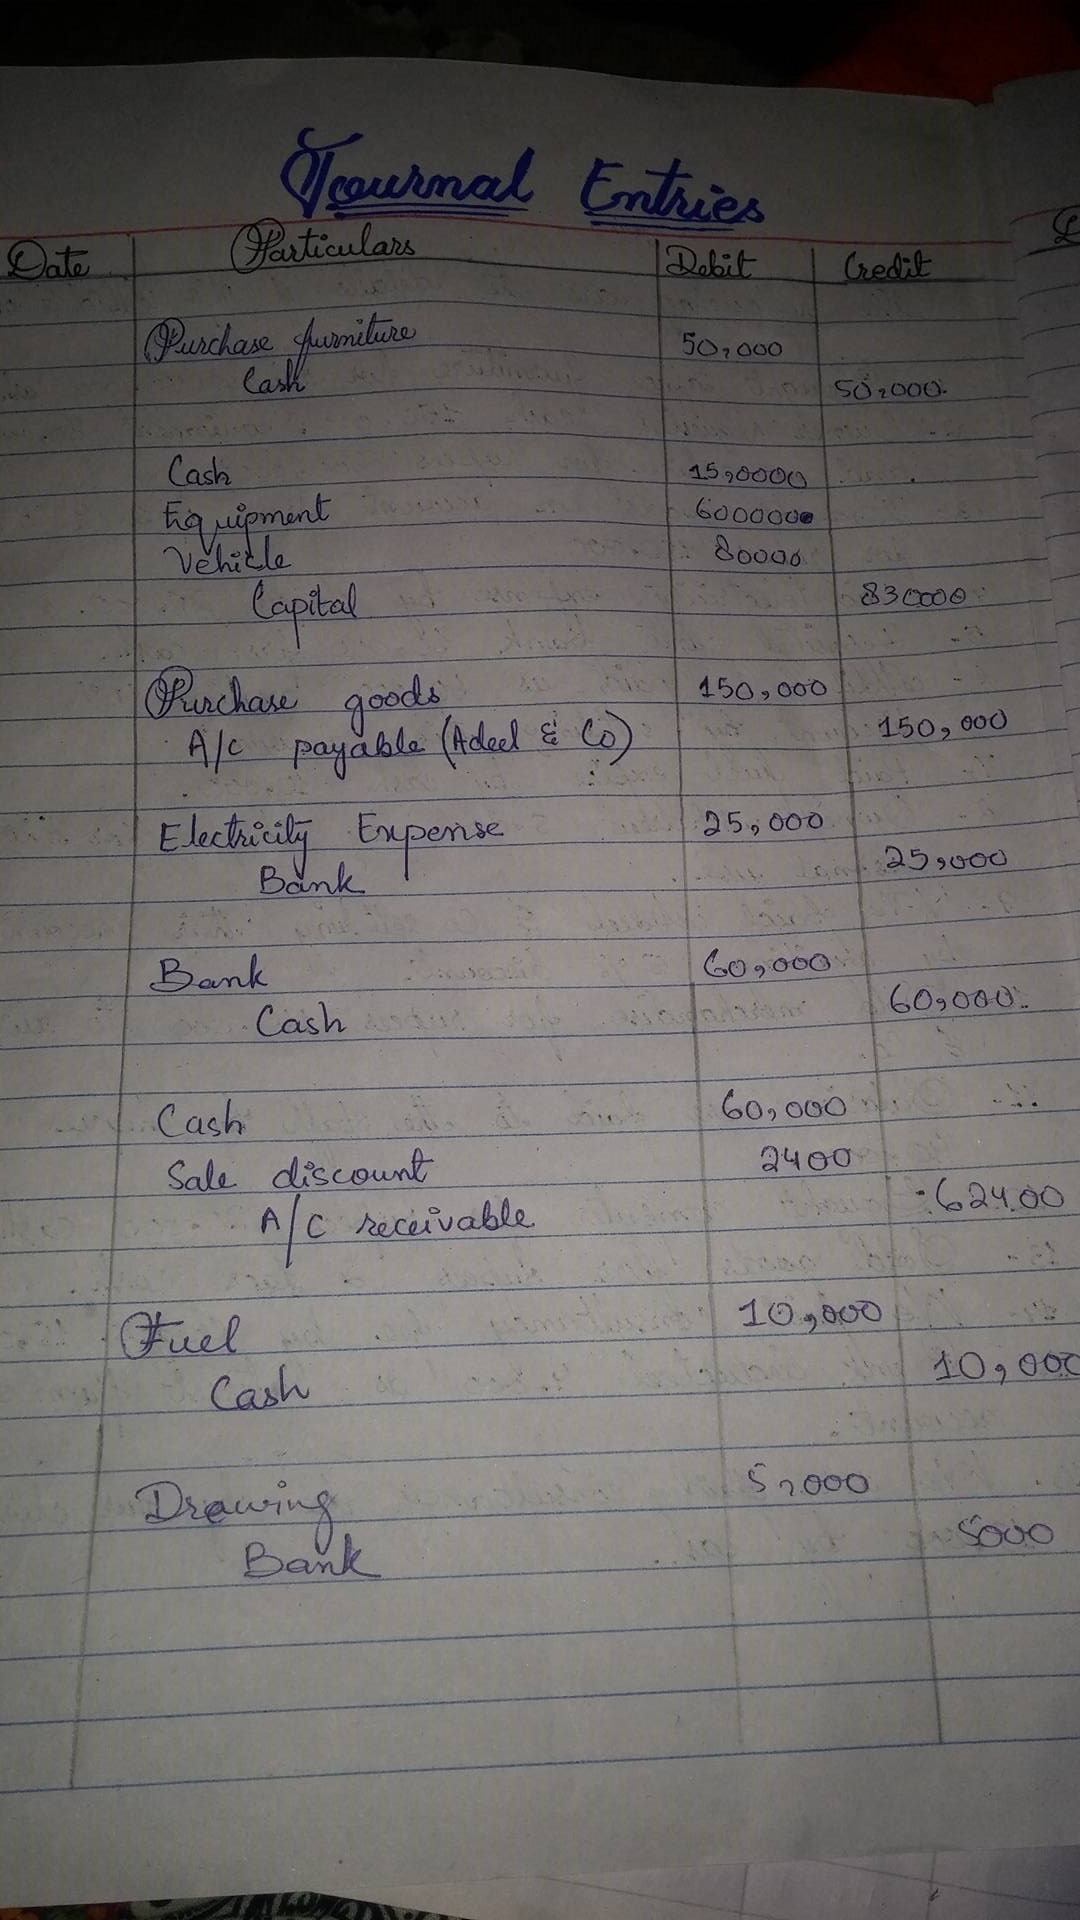 Journal Entries
Date Particulars Debit Credit
Purchase furniture 50,000
Cash 50,000
Cash 15,0000
Equipment 600000
Vehicle 80000
Capital 830000
Purchase goods 150,000
A/C payable (Adeel & Co) 150,000
Electricity Expense 25,000
Bank 25,000
Bank 60,000
Cash 60,000
Cash 60,000
Sale discount 2400
A/C receivable 62400
Fuel 10,000
Cash 10,000
Drawing 5,000
Bank 5000